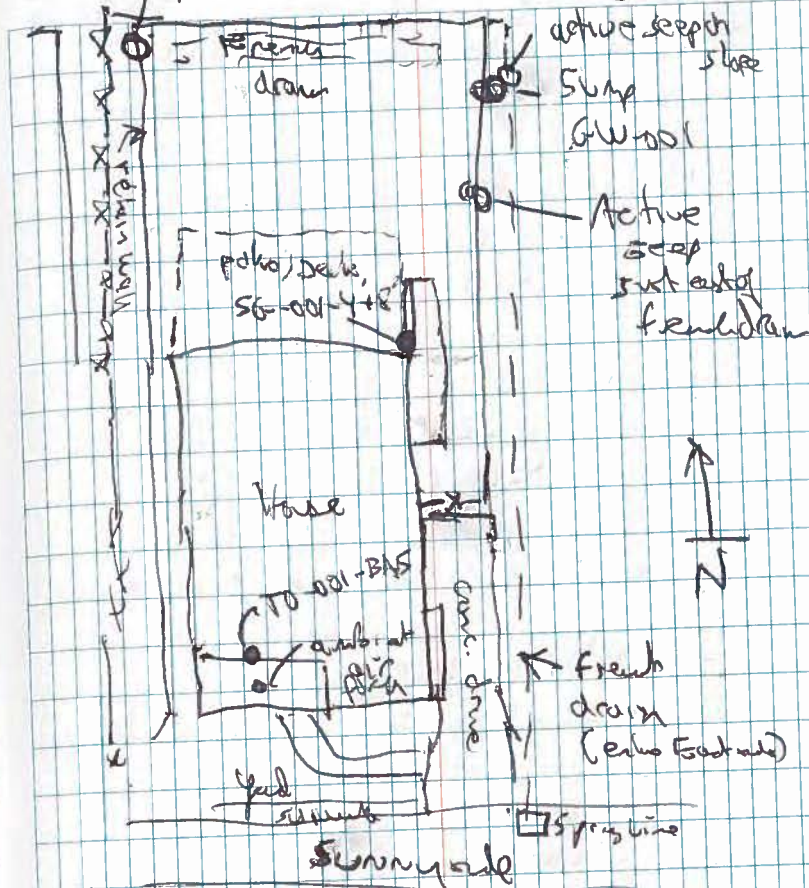 French
drain
active seep on
slope
Sump
GW-001
Active
seep
just east of
french drain
retain wall
patio, Deck,
SG-001-4+8
House
N
TO-001-BAS
ambient
air
porch
conc. drive
french
drain
(entire East side)
Yard
Sunnyside